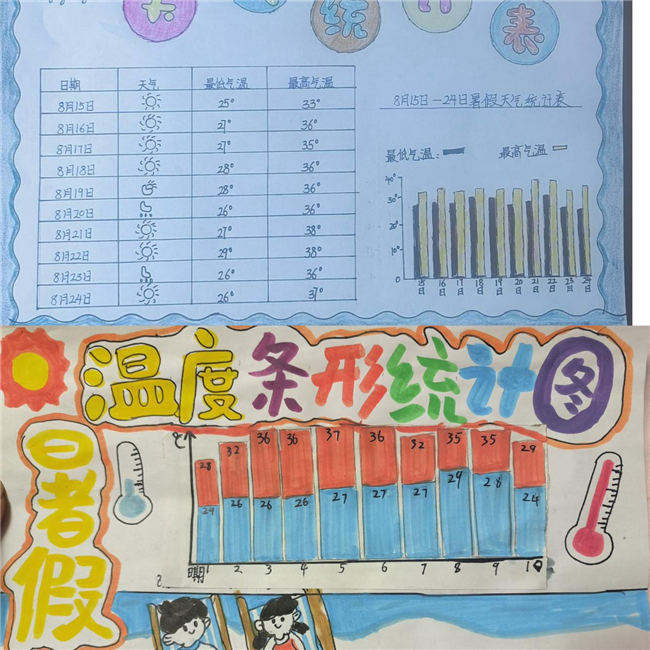 统 计 表
日期 天气 最低气温 最高气温
8月15日 25° 33°
8月16日 27° 36°
8月17日 27° 35°
8月18日 28° 36°
8月19日 28° 36°
8月20日 26° 36°
8月21日 27° 38°
8月22日 29° 38°
8月23日 26° 36°
8月24日 26° 37°
8月15日—24日暑假天气统计表
最低气温: 最高气温
40°
30°
20°
10°
0
15日 16日 17日 18日 19日 20日 21日 22日 23日 24日
温度条形统计图
暑假
℃
28 32 36 36 37 36 32 35 35 29
24 26 26 26 27 27 27 29 28 24
日期 1 2 3 4 5 6 7 8 9 10